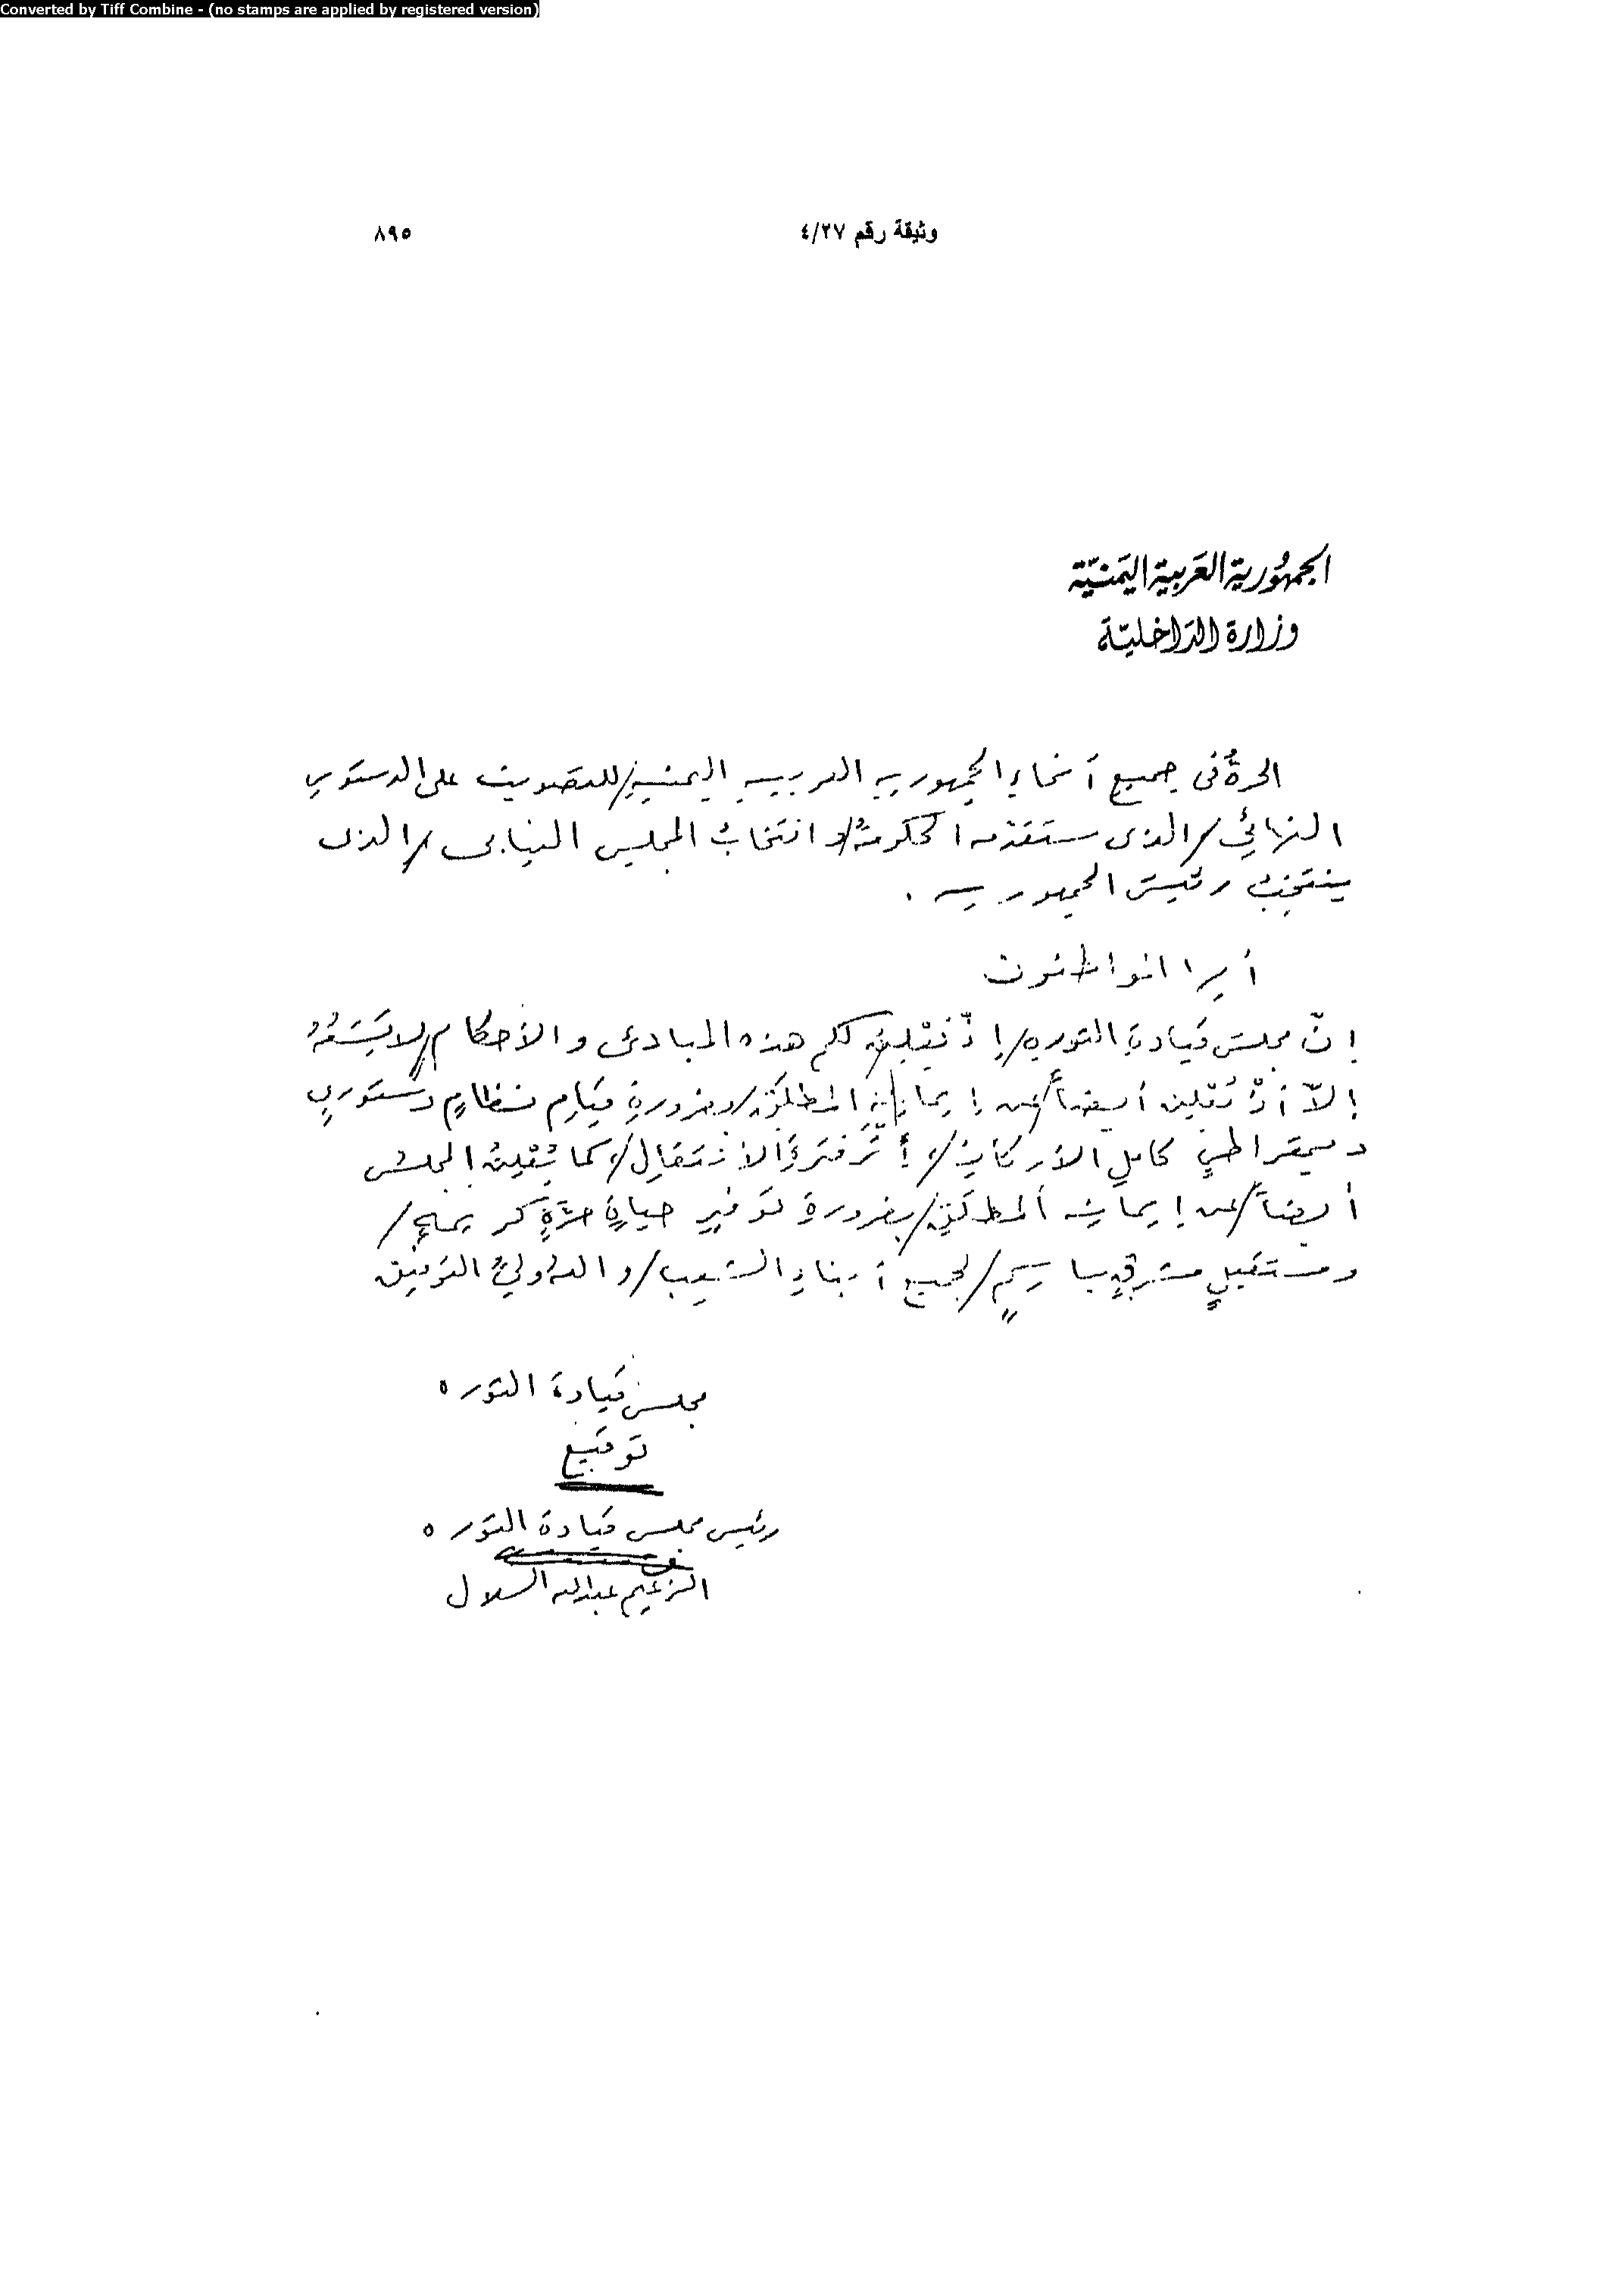 Converted by Tiff Combine - (no stamps are applied by registered version)
وثيقة رقم ٤/٢٧
٨٩٥
الجمهُورية العَربية اليَمنيّة
وزارة الدَاخليّة
الحرةُ فى جميعِ أنحاءِ الجمهوريه العربيه اليمنيهِ/ للتصويت على الدستورِ
النهائيِ/ الذى ستقدمه الحكومةُ/ و انتخابُ المجلس النيابى/ الذى
ينتخبُ رئيسَ الجمهوريه .
أيها المواطنون
إنّ مجلسَ قيادةِ الثورهِ/ إذْ يُعْلِنُ لكم هذه المبادئ و الأحكام/ لا يَسَعُهُ
إلاّ أنْ يُعْلِن أيضاً/ عن إيمانِهِ المطلَقِ/ بضرورةِ قيَامِ نظامٍ دستورىٍ
ديمقراطىٍ كاملِ الأركانِ/ إثْرَ فترَةِ الانتقالِ/ كما يُعْلِنُ المجلسُ
أيضاً/ عن إيمانِه المطلَقِ/ بضرورةِ توفيرِ حياةٍ حرّةٍ كريمةٍ/
ومستقبلٍ مشرقٍ باسمٍ/ لجميع أبناءِ الشعبِ/ و اللهُ وليُّ التوفيق
مجلس قيادة الثوره
توقيع
رئيس مجلس قيادة الثوره
الزعيم عبدالله السلال